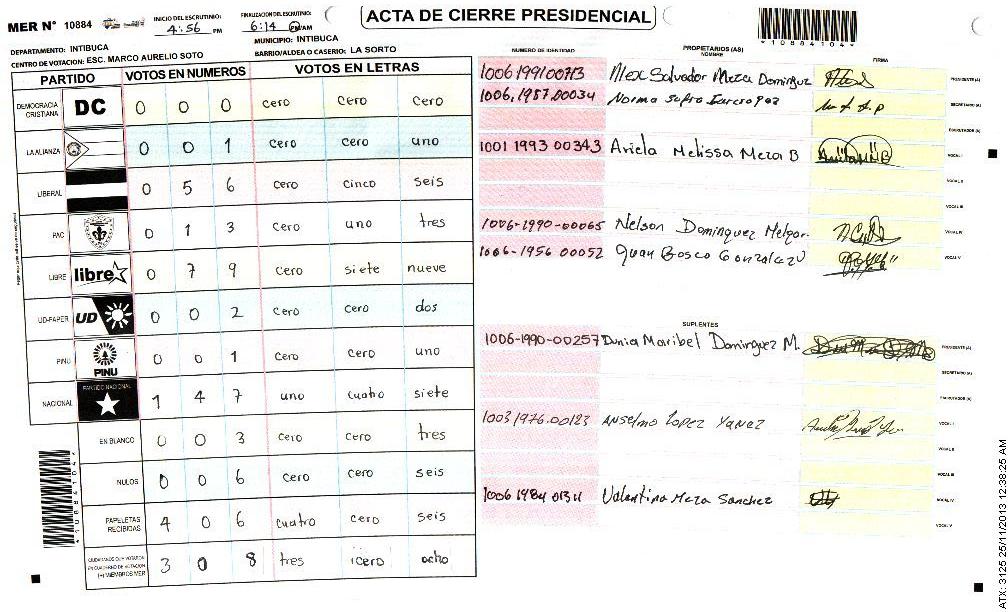 MER N° 10884
INICIO DEL ESCRUTINIO:
4:56 PM
FINALIZACION DEL ESCRUTINIO:
6:14 PM/AM
ACTA DE CIERRE PRESIDENCIAL
*10884104*
DEPARTAMENTO: INTIBUCA
MUNICIPIO: INTIBUCA
CENTRO DE VOTACION: ESC. MARCO AURELIO SOTO
BARRIO/ALDEA O CASERIO: LA SORTO
PARTIDO VOTOS EN NUMEROS VOTOS EN LETRAS
DEMOCRACIA CRISTIANA DC 0 0 0 cero cero cero
LA ALIANZA 0 0 1 cero cero uno
LIBERAL 0 5 6 cero cinco seis
PAC 0 1 3 cero uno tres
LIBRE libre 0 7 9 cero siete nueve
UD-FAPER UD 0 0 2 cero cero dos
PINU PINU 0 0 1 cero cero uno
NACIONAL PARTIDO NACIONAL 1 4 7 uno cuatro siete
EN BLANCO 0 0 3 cero cero tres
NULOS 0 0 6 cero cero seis
PAPELETAS RECIBIDAS 4 0 6 cuatro cero seis
CIUDADANOS QUE VOTARON EN CUADERNO DE VOTACION (+) MIEMBROS MER 3 0 8 tres cero ocho
*10884104*
NUMERO DE IDENTIDAD PROPIETARIOS (AS) NOMBRE FIRMA
Alex Salvador Meza Dominguz PRESIDENTE (A)
1006.1957.00034 Norma SECRETARIO (A)
ESCRUTADOR (A)
1001 1993 00343 Ariela Melissa Meza B VOCAL I
VOCAL II
VOCAL III
1006-1990-00065 Nelson Dominquez Melgar VOCAL IV
1006-1956 00052 Juan Bosco Gonzalez V VOCAL V
SUPLENTES
1006-1990-00257 Dunia Maribel Dominguez M. PRESIDENTE (A)
SECRETARIO (A)
ESCRUTADOR (A)
1003 1976.00123 Anselmo Lopez Yanez VOCAL I
VOCAL II
VOCAL III
Valentina Meza Sanchez VOCAL IV
VOCAL V
ATX: 3125 25/11/2013 12:38:25 AM